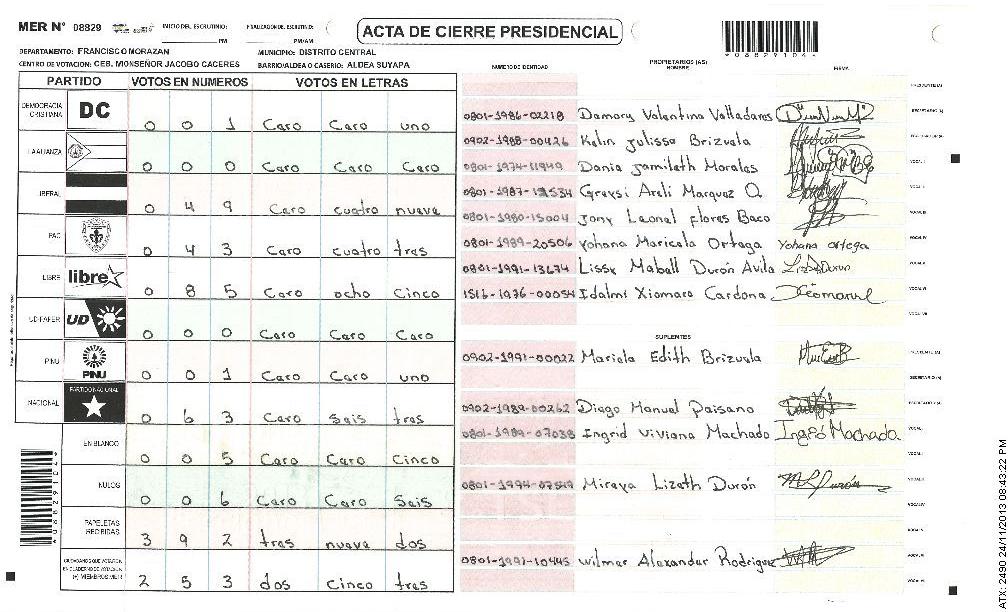 MER N° 08829 INICIO DEL ESCRUTINIO: PM FINALIZACION DEL ESCRUTINIO: PM/AM
ACTA DE CIERRE PRESIDENCIAL
*08829104*
DEPARTAMENTO: FRANCISCO MORAZAN MUNICIPIO: DISTRITO CENTRAL
CENTRO DE VOTACION: CEB. MONSEÑOR JACOBO CACERES BARRIO/ALDEA O CASERIO: ALDEA SUYAPA
NUMERO DE IDENTIDAD PROPIETARIOS (AS) NOMBRE FIRMA
PARTIDO VOTOS EN NUMEROS VOTOS EN LETRAS
PRESIDENTE (A)
DEMOCRACIA CRISTIANA DC 0 0 1 Caro Caro uno
0801-1986-02218 Damary Valentina Valladares SECRETARIO (A)
0902-1988-00426 Kelin Julissa Brizuela
LA ALIANZA 0 0 0 Caro Caro Caro
0801-1974-11949 Dania Jamileth Morales VOCAL I
LIBERAL 0 4 9 Caro cuatro nueve
0801-1987-12534 Greysi Areli Marquez O. VOCAL II
0801-1980-15004 Jony Leonel Flores Baco VOCAL III
PAC 0 4 3 Caro cuatro tres
0801-1989-20506 Yohana Maricela Ortega Yohana ortega VOCAL IV
LIBRE libre 0 8 5 Caro ocho Cinco
0801-1991-13674 Lissy Maball Durón Avila VOCAL V
1516-1976-00054 Idalmi Xiomara Cardona VOCAL VI
UD-FAPER UD 0 0 0 Caro Caro Caro
VOCAL VII
SUPLENTES
PINU PINU 0 0 1 Caro Caro uno
0902-1991-00022 Mariela Edith Brizuela PRESIDENTE (A)
SECRETARIO (A)
NACIONAL PARTIDO NACIONAL 0 6 3 Caro Seis tres
0902-1989-00262 Diego Manuel Paisano
0801-1989-07038 Ingrid Viviana Machado Ingrid Machado VOCAL I
EN BLANCO 0 0 5 Caro Caro Cinco
VOCAL II
NULOS 0 0 6 Caro Caro Seis
0801-1994-07549 Mireya Lizeth Durón VOCAL III
VOCAL IV
PAPELETAS RECIBIDAS 3 9 2 tres nueve dos
VOCAL V
0801-1991-10445 Wilmer Alexander Rodriguez VOCAL VI
CIUDADANOS QUE VOTARON EN CUADERNO DE VOTACION (+) MIEMBROS MER 2 5 3 dos Cinco tres
VOCAL VII
*08829104*
ATX: 2490 24/11/2013 08:43:22 PM